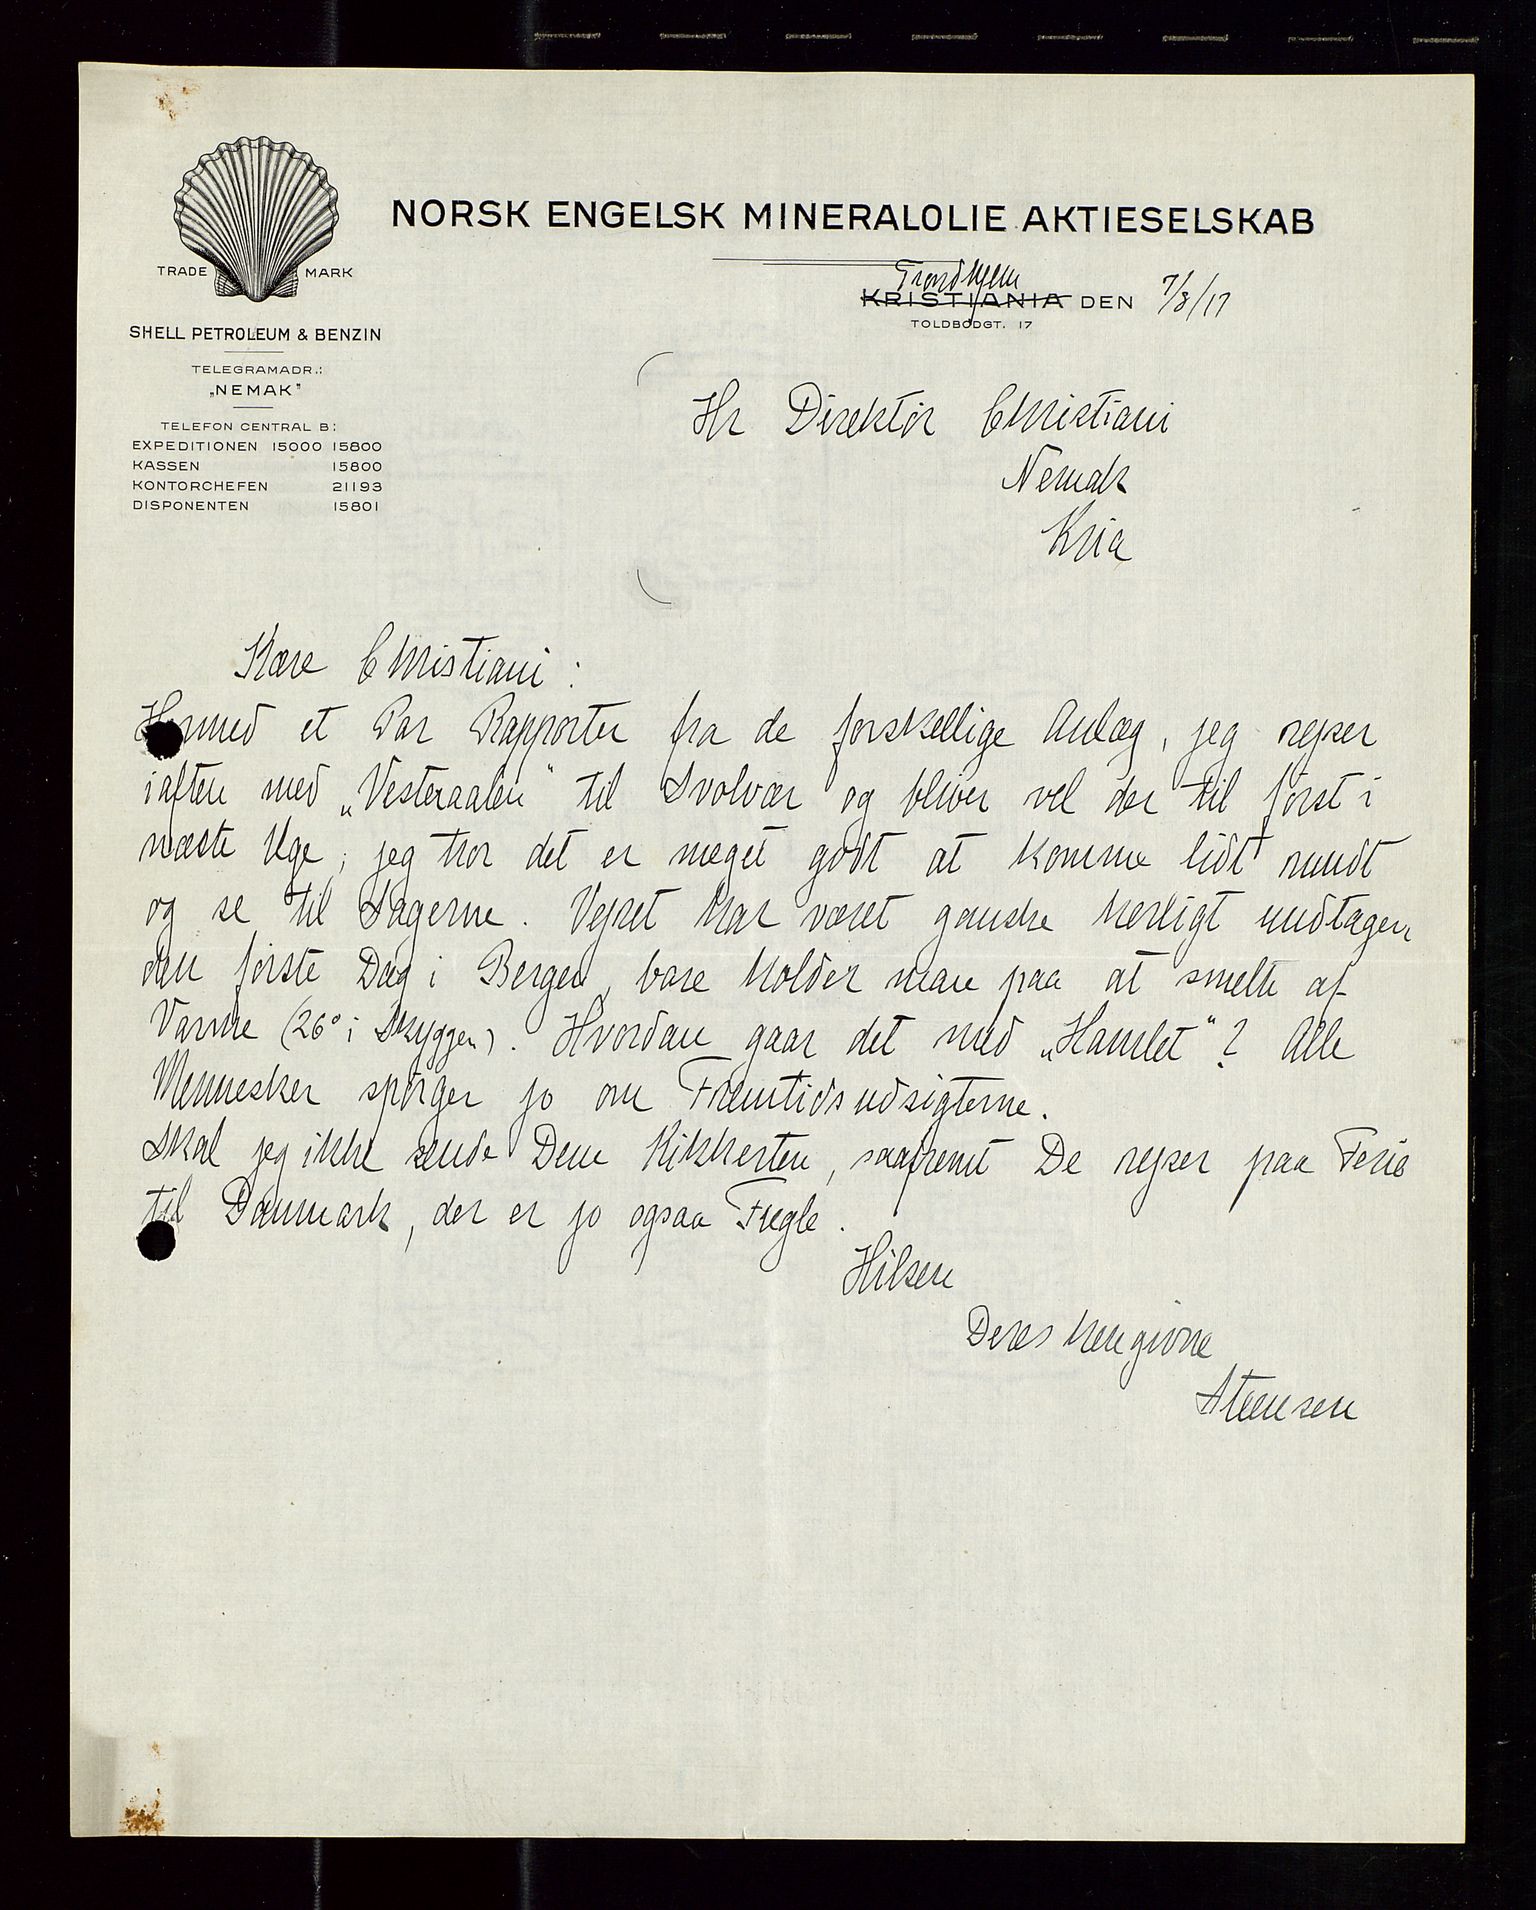 NORSK ENGELSK MINERALOLIE AKTIESELSKAB
TRADE MARK
SHELL PETROLEUM & BENZIN
TELEGRAMADR.:
„NEMAK"
TELEFON CENTRAL B:
EXPEDITIONEN 15000 15800
KASSEN 15800
KONTORCHEFEN 21193
DISPONENTEN 15801
Trondhjem
KRISTIANIA DEN 7/8/17
TOLDBODGT. 17
Hr Direktör Christiani
Nemak
Kria
Kære Christiani:
Hermed et Par Rapporter fra de forskellige Anlæg, jeg rejser
iaften med „Vesteraalen" til Svolvær og bliver vel der til först i
næste Uge, jeg tror det er meget godt at komme lidt rundt
og se til Lagerne. Vejret har været ganske herligt undtagen
den förste Dag i Bergen, bare holder man paa at smelte af
Varme (26° i Skyggen). Hvordan gaar det med „Hamlet"? Alle
Mennesker spörger jo om Fremtidsudsigterne.
Skal jeg ikke sende Dem Kikkerten, saafremt De rejser paa Ferie
til Danmark, der er jo ogsaa Fugle.
Hilsen
Deres hengivne
Steensen